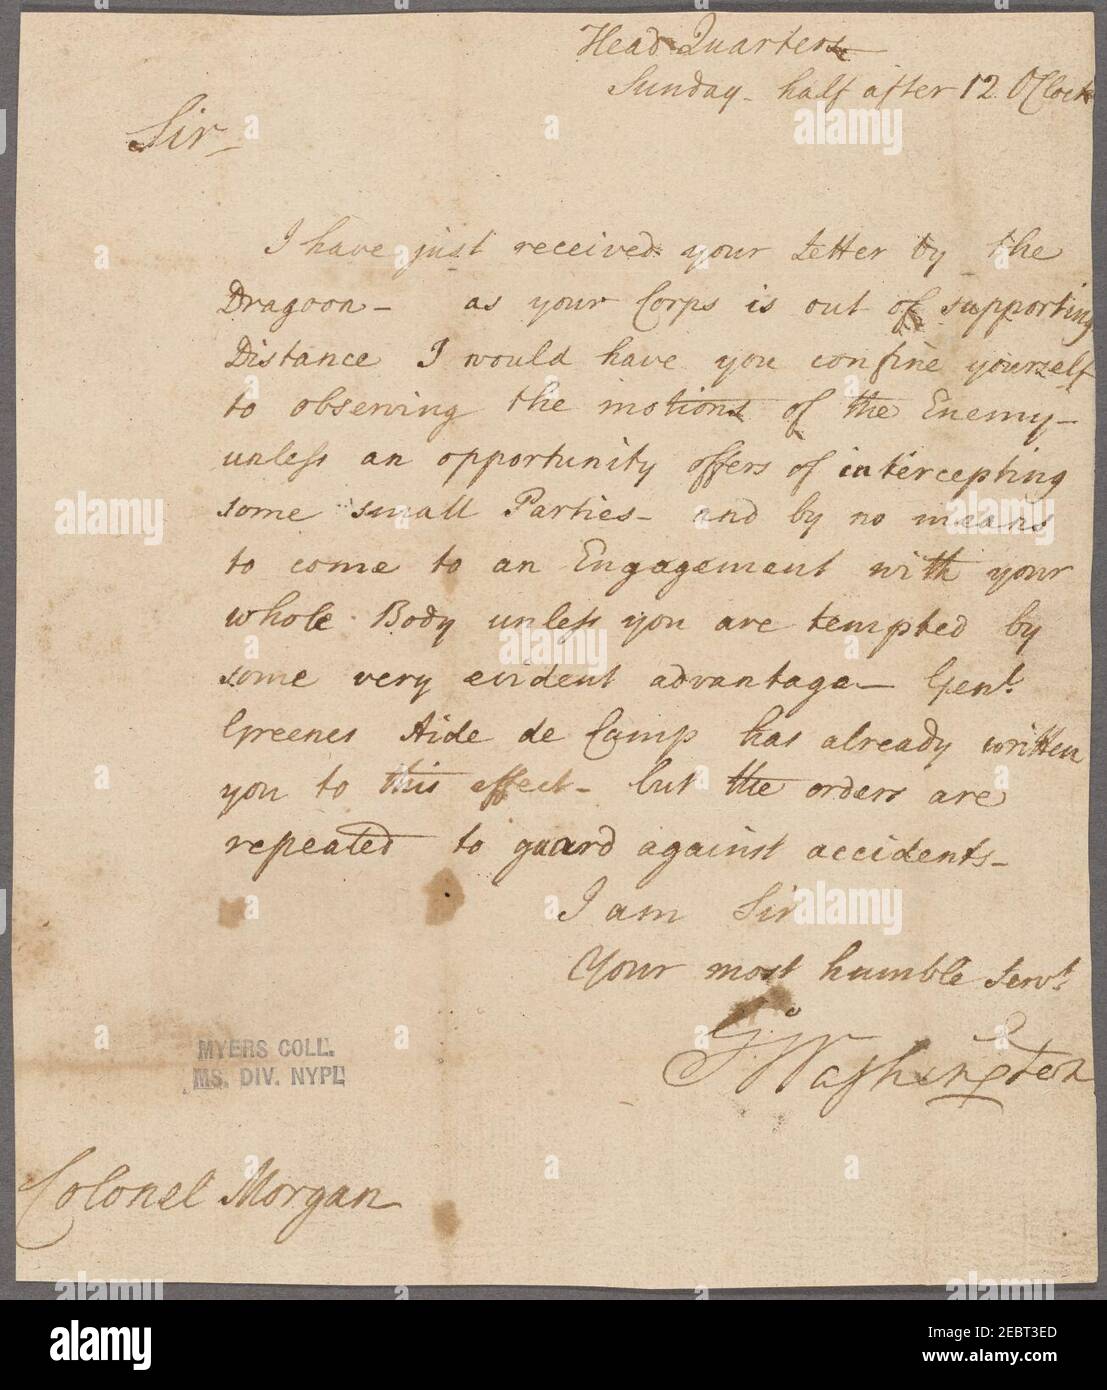 Head Quarters
Sunday - half after 12 O'Clock
Sir -
I have just received your Letter by the
Dragoon - as your Corps is out of supporting
Distance I would have you confine yourself
to observing the motions of the Enemy -
unless an opportunity offers of intercepting
some small Parties - and by no means
to come to an Engagement with your
whole Body unless you are tempted by
some very evident advantage - Genl.
Greenes Aide de Camp has already written
you to this effect - but the orders are
repeated to guard against accidents -
I am Sir
Your most humble Servt.
Go Washington
MYERS COLL.
MS. DIV. NYPL
Colonel Morgan
alamy
Image ID: 2EBT3ED
www.alamy.com